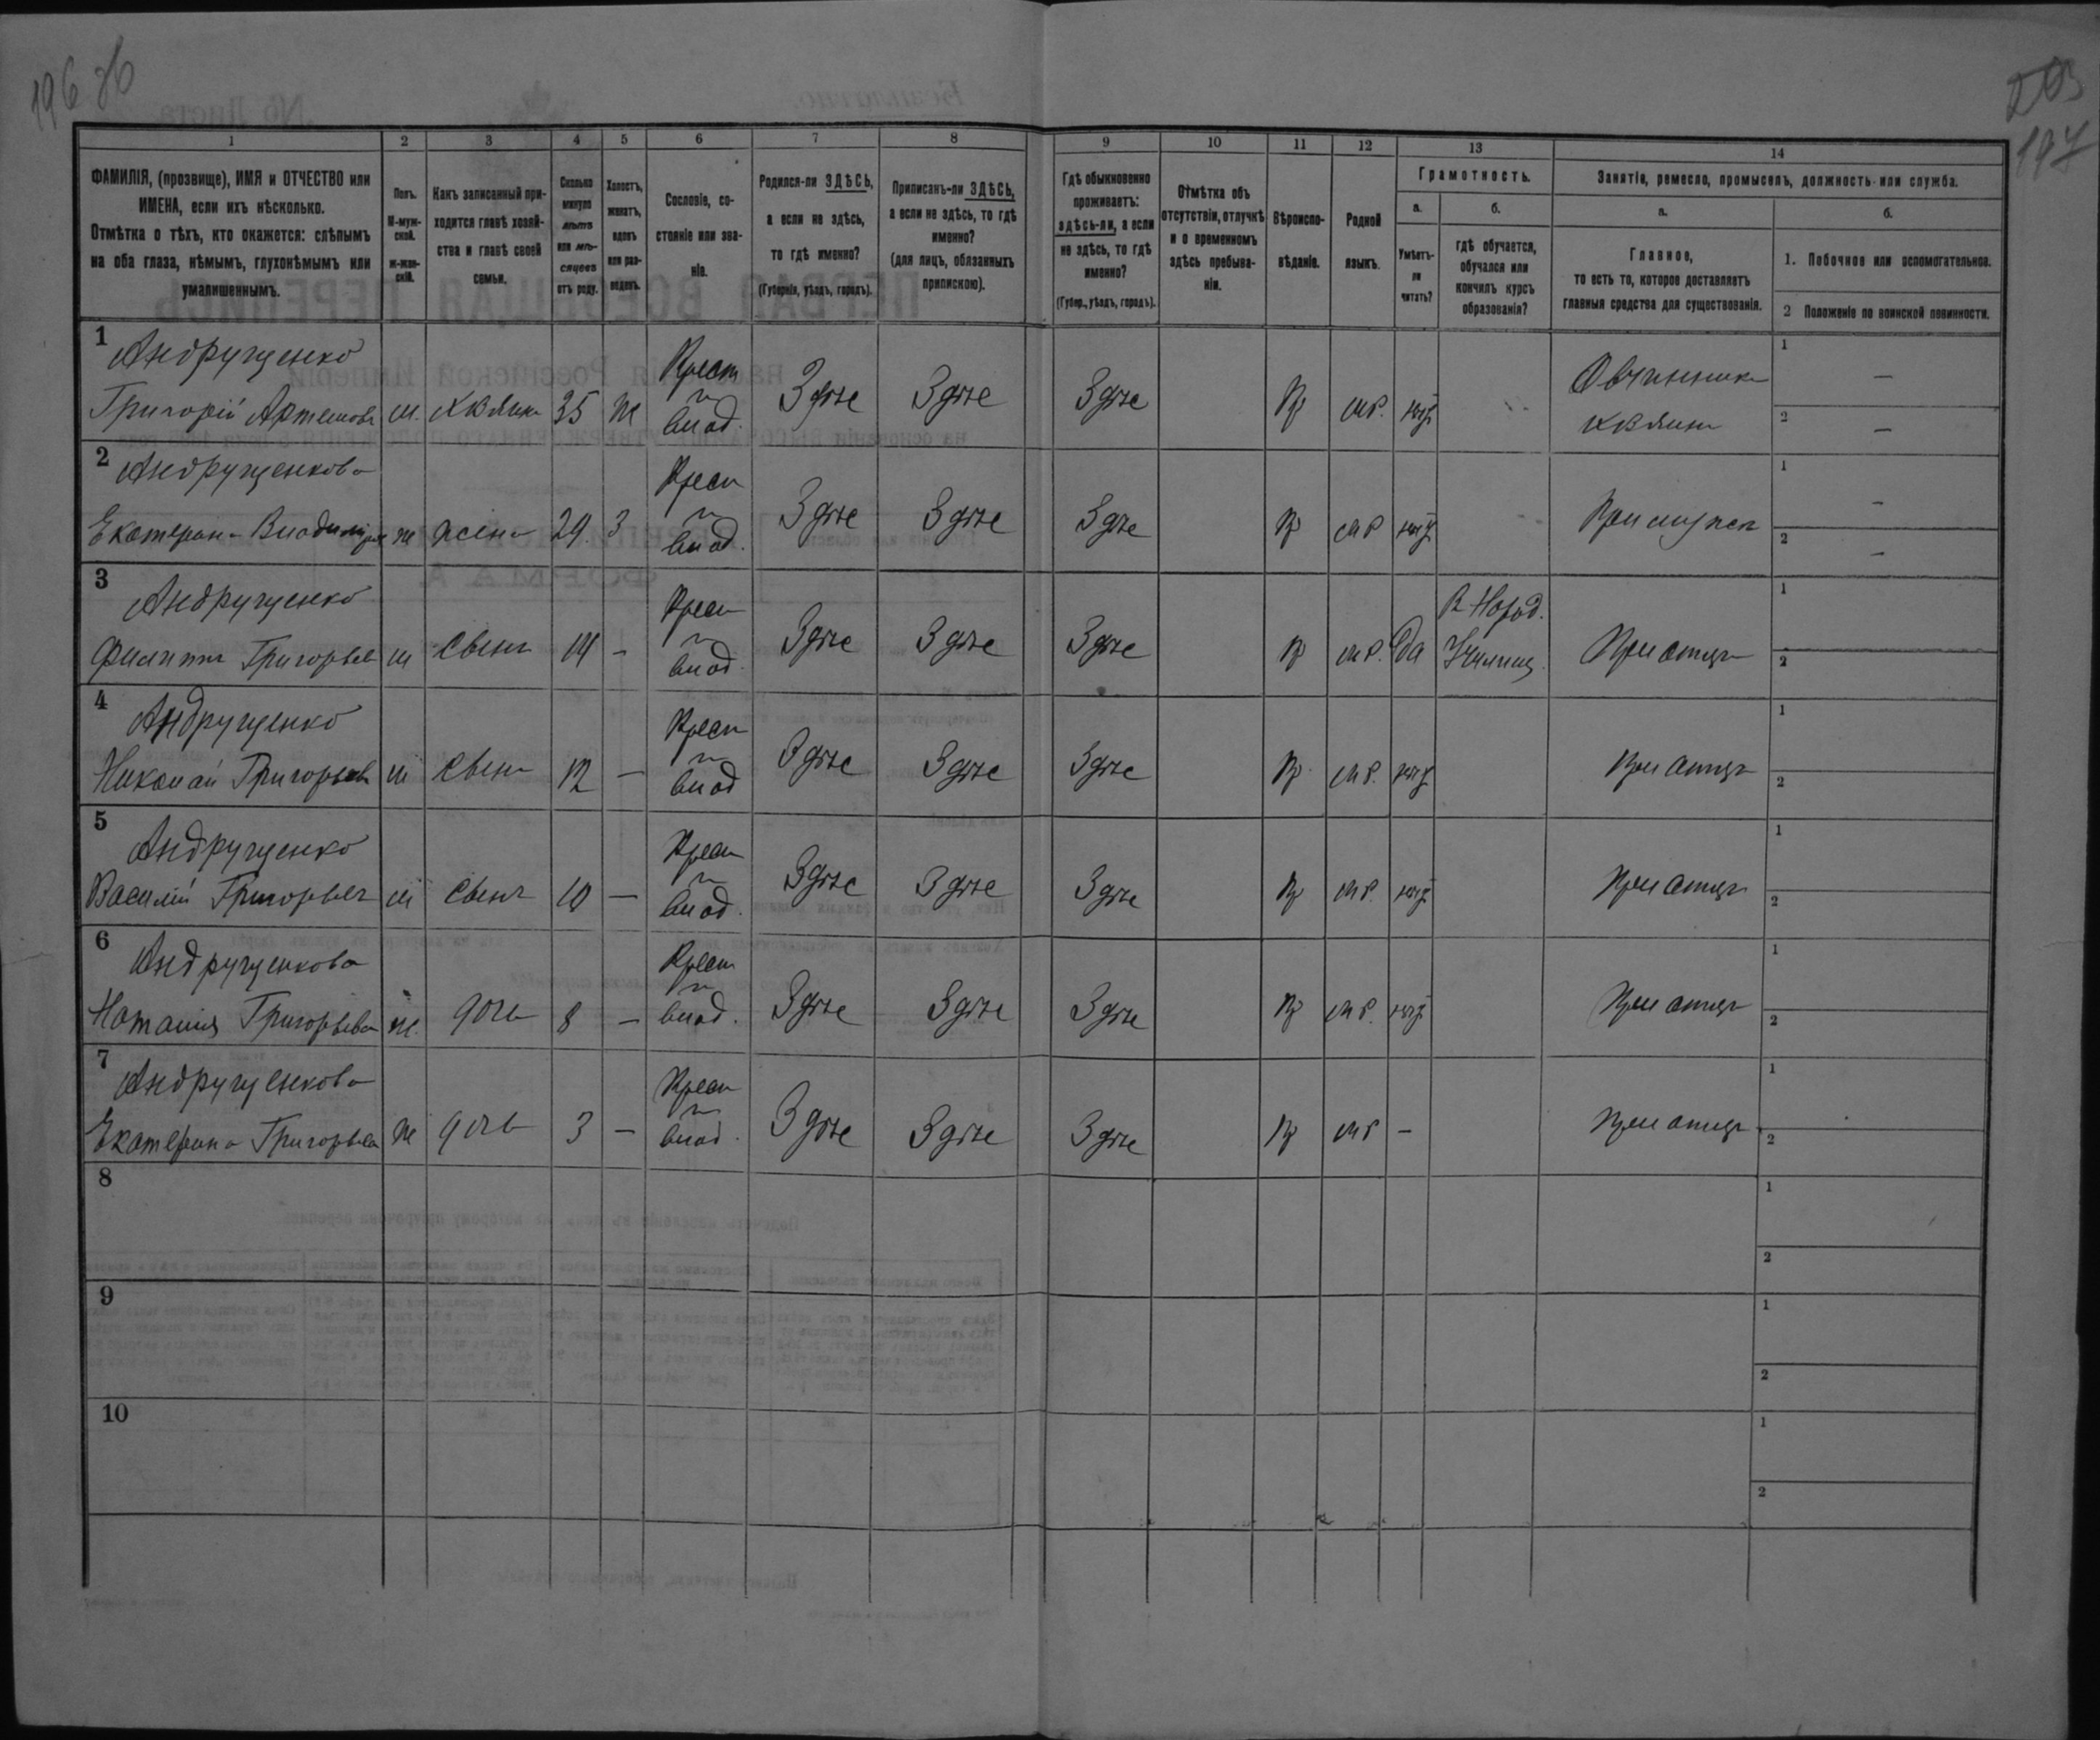 196 об
203
197
1 2 3 4 5 6 7 8 9 10 11 12 13 14
ФАМИЛІЯ, (прозвище), ИМЯ и ОТЧЕСТВО или
ИМЕНА, если ихъ нѣсколько.
Отмѣтка о тѣхъ, кто окажется: слѣпымъ
на оба глаза, нѣмымъ, глухонѣмымъ или
умалишеннымъ.
Полъ.
М-муж-
ской.
ж-жен-
скій.
Какъ записанный при-
ходится главѣ хозяй-
ства и главѣ своей
семьи.
Сколько
минуло
лѣтъ
или мѣ-
сяцевъ
отъ роду.
Холостъ,
женатъ,
вдовъ
или раз-
веденъ.
Сословіе, со-
стояніе или зва-
ніе.
Родился-ли ЗДѢСЬ,
а если не здѣсь,
то гдѣ именно?
(Губернія, уѣздъ, городъ).
Приписанъ-ли ЗДѢСЬ,
а если не здѣсь, то гдѣ
именно?
(для лицъ, обязанныхъ
припискою).
Гдѣ обыкновенно
проживаетъ:
здѣсь-ли, а если
не здѣсь, то гдѣ
именно?
(Губер., уѣздъ, городъ).
Отмѣтка объ
отсутствіи, отлучкѣ
и о временномъ
здѣсь пребыва-
ніи.
Вѣроиспо-
вѣданіе.
Родной
языкъ.
Грамотность.
а.
Умѣетъ-
ли
читать?
б.
гдѣ обучается,
обучался или
кончилъ курсъ
образованія?
Занятіе, ремесло, промыселъ, должность или служба.
а.
Главное,
то есть то, которое доставляетъ
главныя средства для существованія.
б.
1. Побочное или вспомогательное.
2 Положеніе по воинской повинности.
1 Андрущенко Крест Овчинникъ 1 —
Григорій Артемовъ м. хозяинъ 35 ж влад. Здѣсе Здѣсе Здѣсе Пр мр. нѣт хозяинъ 2 —
2 Андрущенкова Крест 1 —
Екатерина Владимір ж жена 29. З влад. Здѣсе Здѣсе Здѣсе Пр мр нѣт При мужѣ 2 —
3 Андрущенко Крест В Народ. 1
Филиппъ Григорьев м сынъ 14 - влад. Здѣсе Здѣсе Здѣсе Пр мр. Да Училищ. При отцѣ 2
4 Андрущенко Крест 1
Николай Григорьевъ м сынъ 12 — влад Здѣсе Здѣсе Здѣсе Пр мр. нѣт При отцѣ 2
5 Андрущенко Крест 1
Василій Григорьевъ м сынъ 10 — влад. Здѣсе Здѣсе Здѣсе Пр мр. нѣт При отцѣ 2
6 Андрущенкова Крест 1
Наталия Григорьева ж. дочь 8 — влад. Здѣсе Здѣсе Здѣсе Пр мр. нѣт При отцѣ 2
7 Андрущенкова Крест 1
Екатерина Григорьева ж дочь 3 — влад. Здѣсе Здѣсе Здѣсе Пр мр — При отцѣ 2
8 1
2
9 1
2
10 1
2